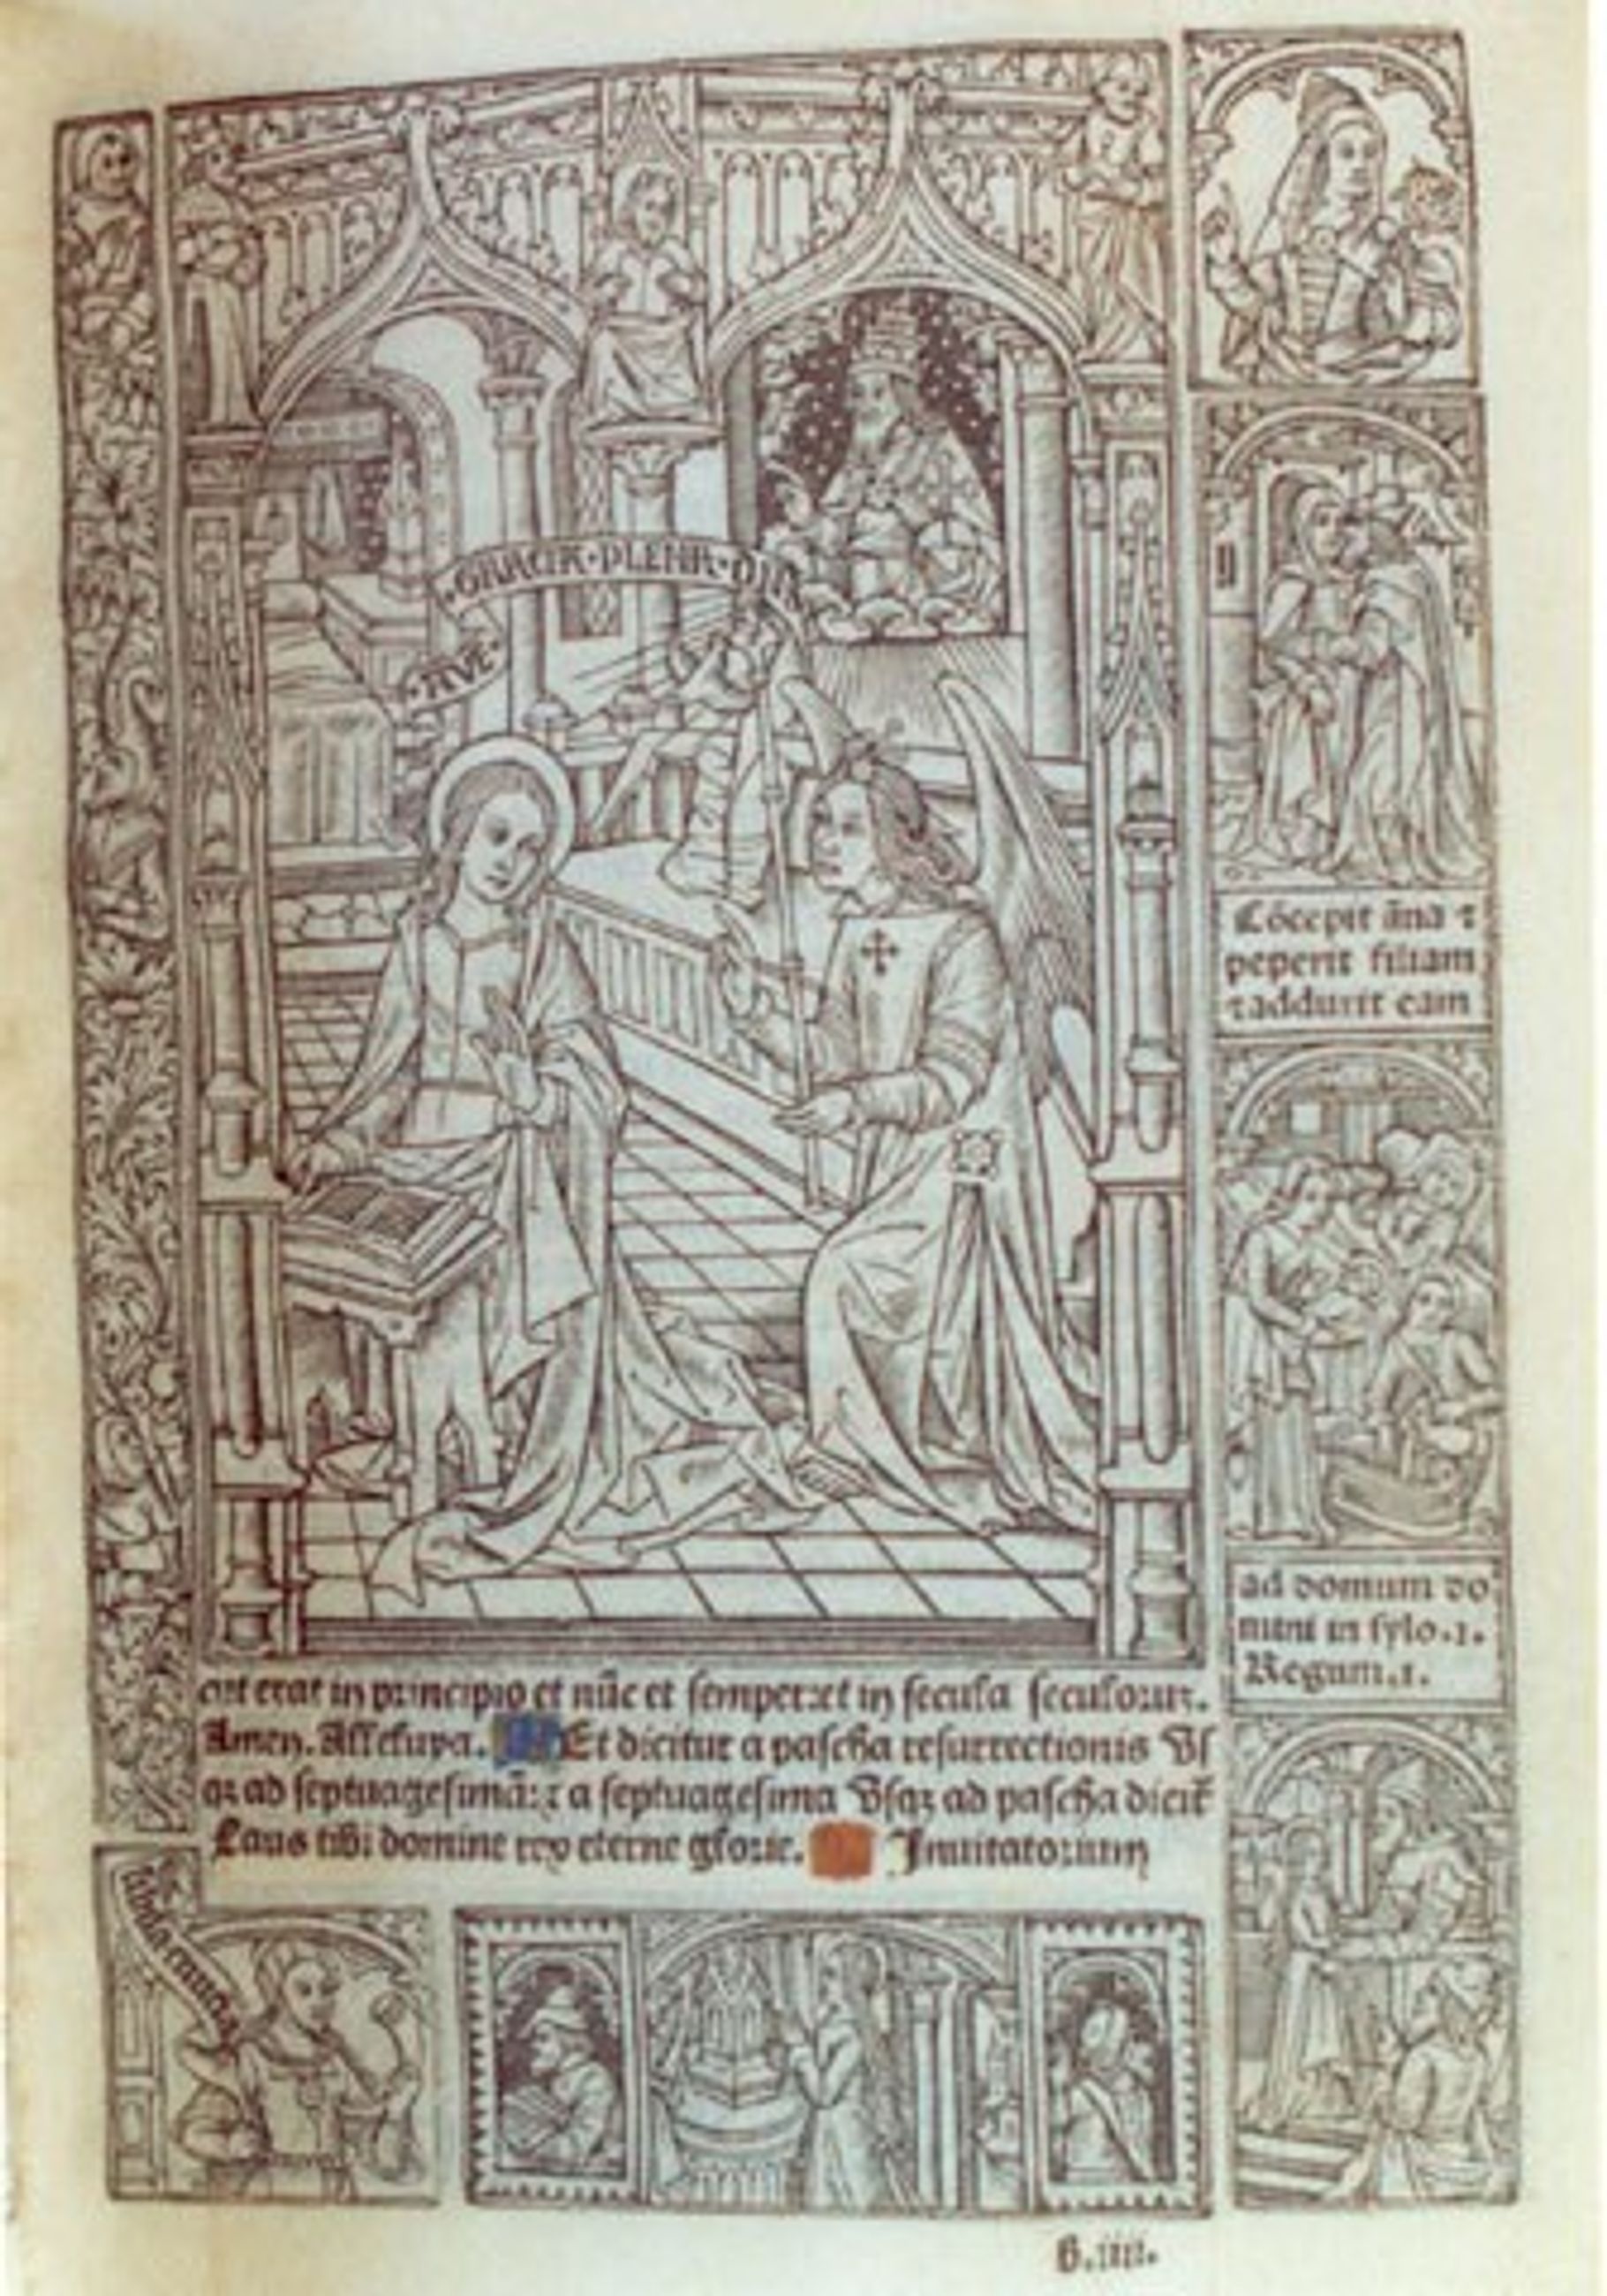 AVE
GRACIA · PLENA · DNS
Cōcepit āna ⁊
peperit filiam
⁊ adduxit eam
ad domum do
mini in sylo. 1.
Regum. 1.
cut erat in principio et nūc et semper: et in secula seculorum.
Amen. Alleluya. Et dicitur a pascha resurrectionis vs
q; ad septuagesimā: ⁊ a septuagesima vsq; ad pascha dicit̄
Laus tibi domine rex eterne glorie. Inuitatorium
b.iiii.